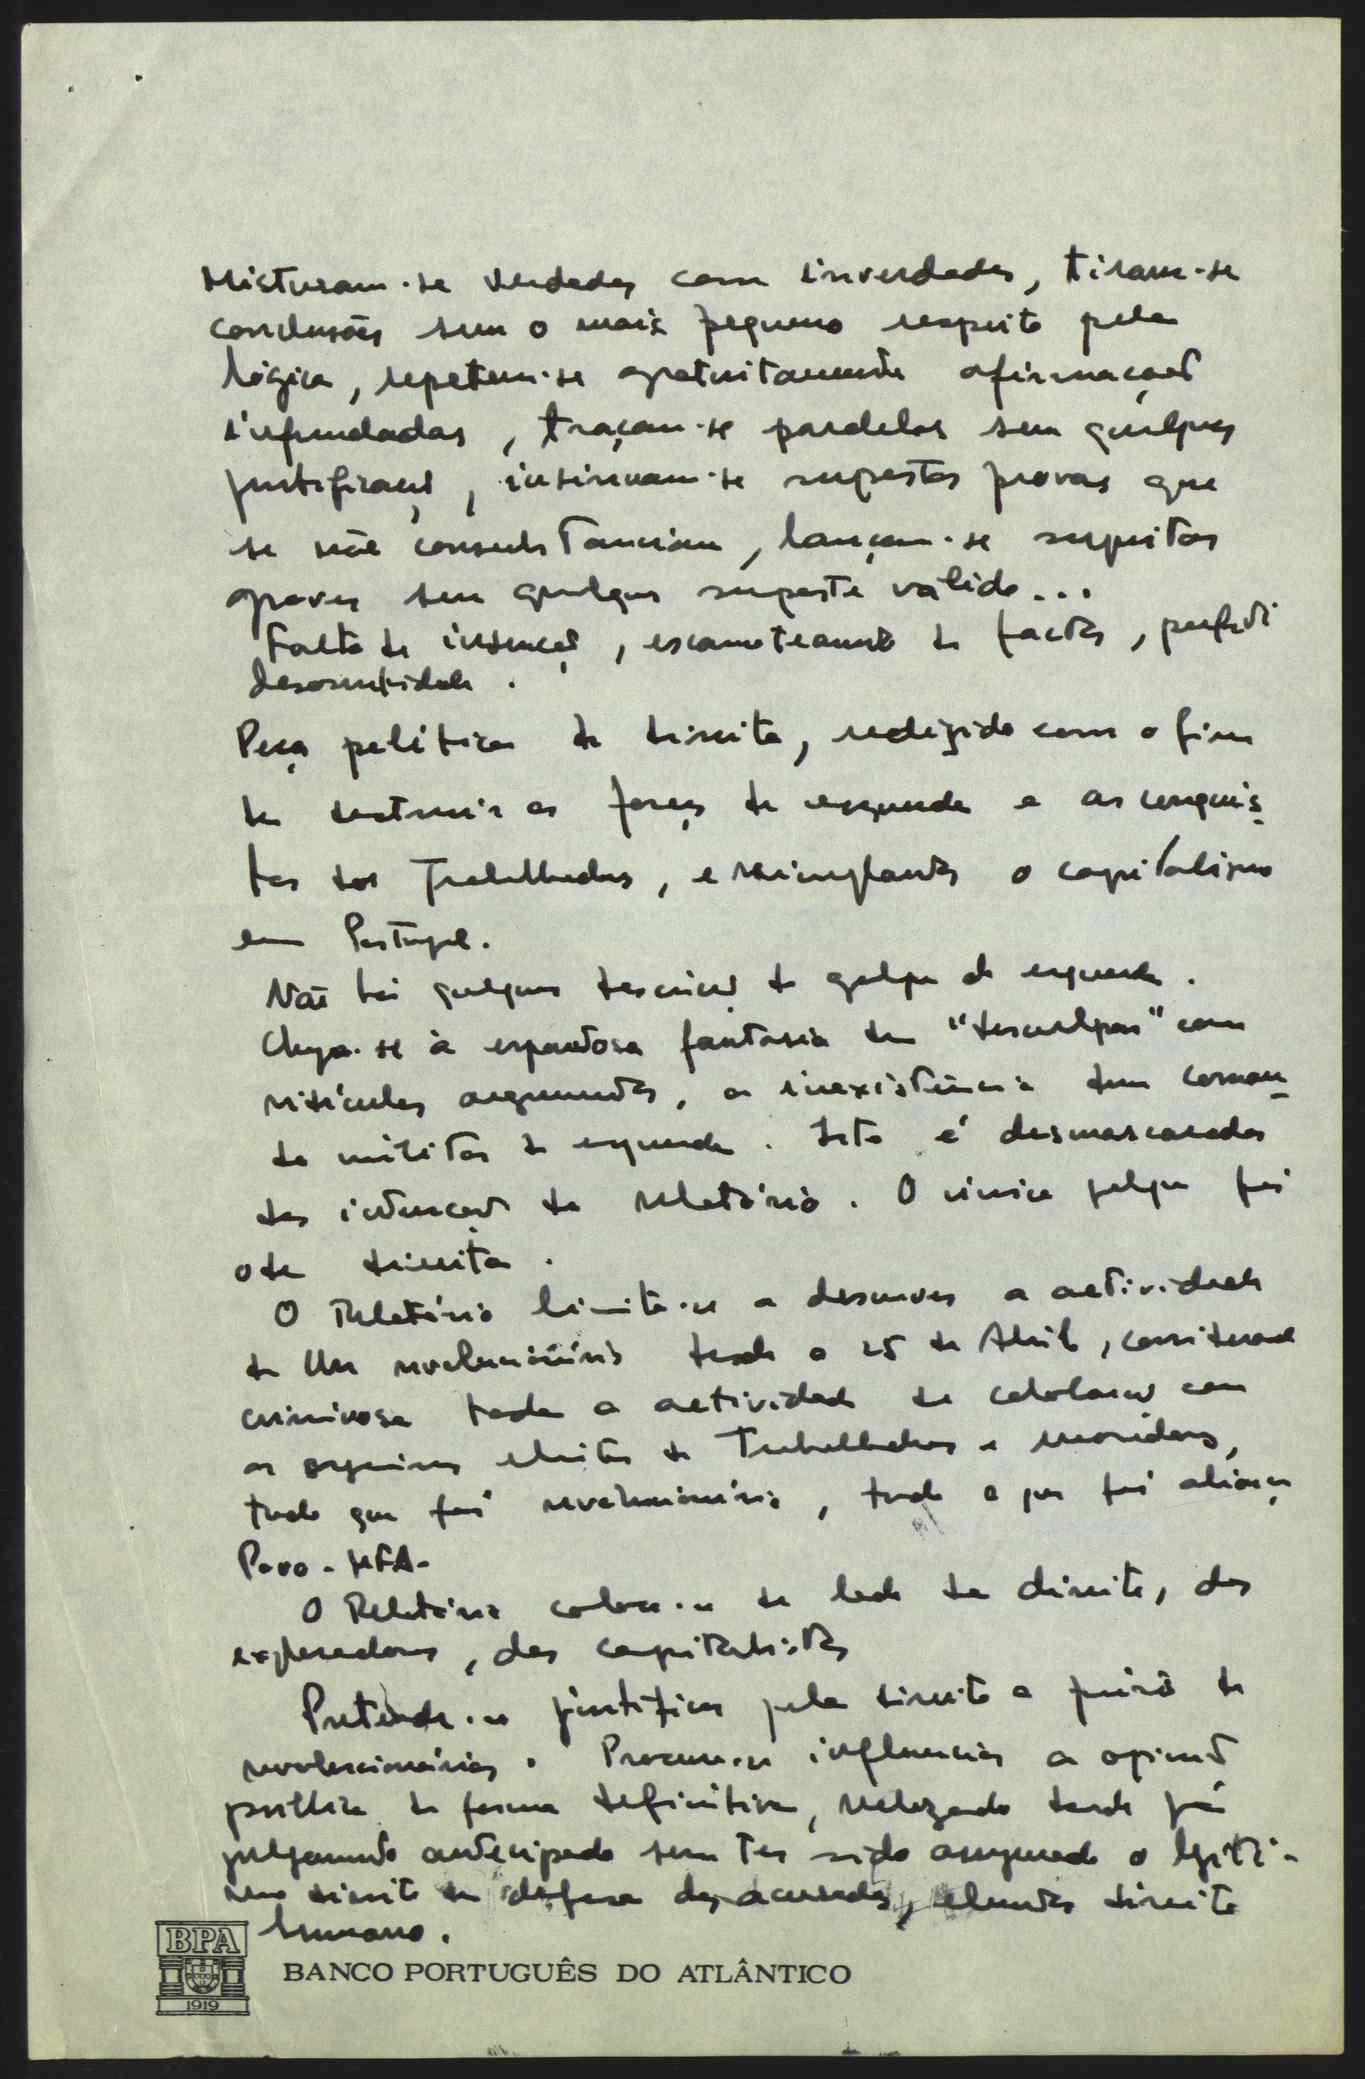 Misturam-se verdades com inverdades, tiram-se
conclusões sem o mais pequeno respeito pela
lógica, repetem-se gratuitamente afirmações
infundadas, traçam-se paralelos sem qualquer
justificação, insinuam-se supostas provas que
se não consubstanciam, lançam-se suspeitas
graves sem qualquer suporte válido...
Falta de isenção, escamoteamento de factos, perfeita
desonestidade.
Peça política de direita, redigida com o fim
de destruir as forças de esquerda e as conquis-
tas dos Trabalhadores, e reimplantar o capitalismo
em Portugal.
Não há qualquer descrição de golpe de esquerda.
Chega-se à espantosa fantasia de "desculpar" com
ridículos argumentos, a inexistência dum coman-
do militar de esquerda. Isto é desmascarador
das intenções do relatório. O único golpe foi
o da direita.
O Relatório limita-se a descrever a actividade
de revolucionários desde o 25 de Abril, considerando
criminosa toda a actividade de colaboração com
os órgãos eleitos de Trabalhadores e moradores,
tudo que foi revolucionário, tudo o que foi aliança
Povo-MFA-
O Relatório coloca-se do lado da direita, dos
exploradores, dos capitalistas
Pretende-se justificar pela direita a prisão de
revolucionários. Procura-se influenciar a opinião
pública de forma definitiva, relegando desde já
julgamento antecipado sem ter sido assegurado o legíti-
mo direito de defesa dos acusados, elementar direito
humano.
BPA
1919
BANCO PORTUGUÊS DO ATLÂNTICO